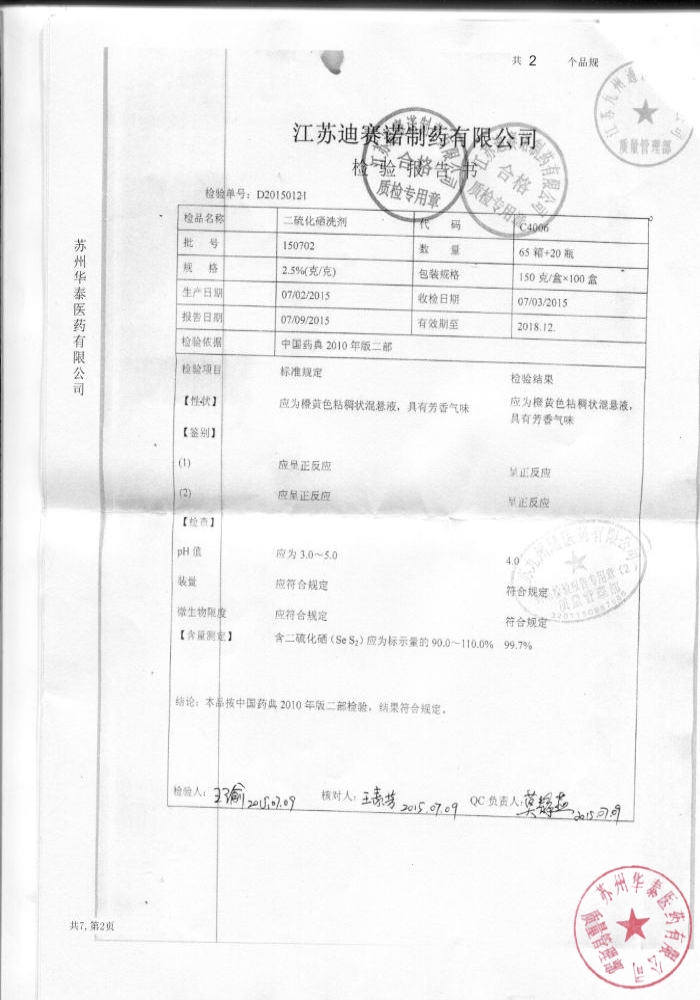 共 2 个品规
江苏迪赛诺制药有限公司
检验报告书
检验单号：D20150121
检品名称 二硫化硒洗剂 代 码 C4006
批 号 150702 数 量 65 箱+20 瓶
规 格 2.5%(克/克) 包装规格 150 克/盒×100 盒
生产日期 07/02/2015 收检日期 07/03/2015
报告日期 07/09/2015 有效期至 2018.12.
检验依据 中国药典 2010 年版二部
检验项目 标准规定 检验结果
【性状】 应为橙黄色粘稠状混悬液，具有芳香气味 应为橙黄色粘稠状混悬液，
具有芳香气味
【鉴别】
(1) 应呈正反应 呈正反应
(2) 应呈正反应 呈正反应
【检查】
pH 值 应为 3.0～5.0 4.0
装量 应符合规定 符合规定
微生物限度 应符合规定 符合规定
【含量测定】 含二硫化硒（Se S₂）应为标示量的 90.0～110.0% 99.7%
结论：本品按中国药典 2010 年版二部检验，结果符合规定。
检验人： 2015.07.09 核对人：王素芳 2015.07.09 QC 负责人： 2015.07.09
苏州华泰医药有限公司
共7, 第2页
合格
质检专用章
合格
质检专用章
质量管理部
苏州华泰医药有限公司
质量管理部